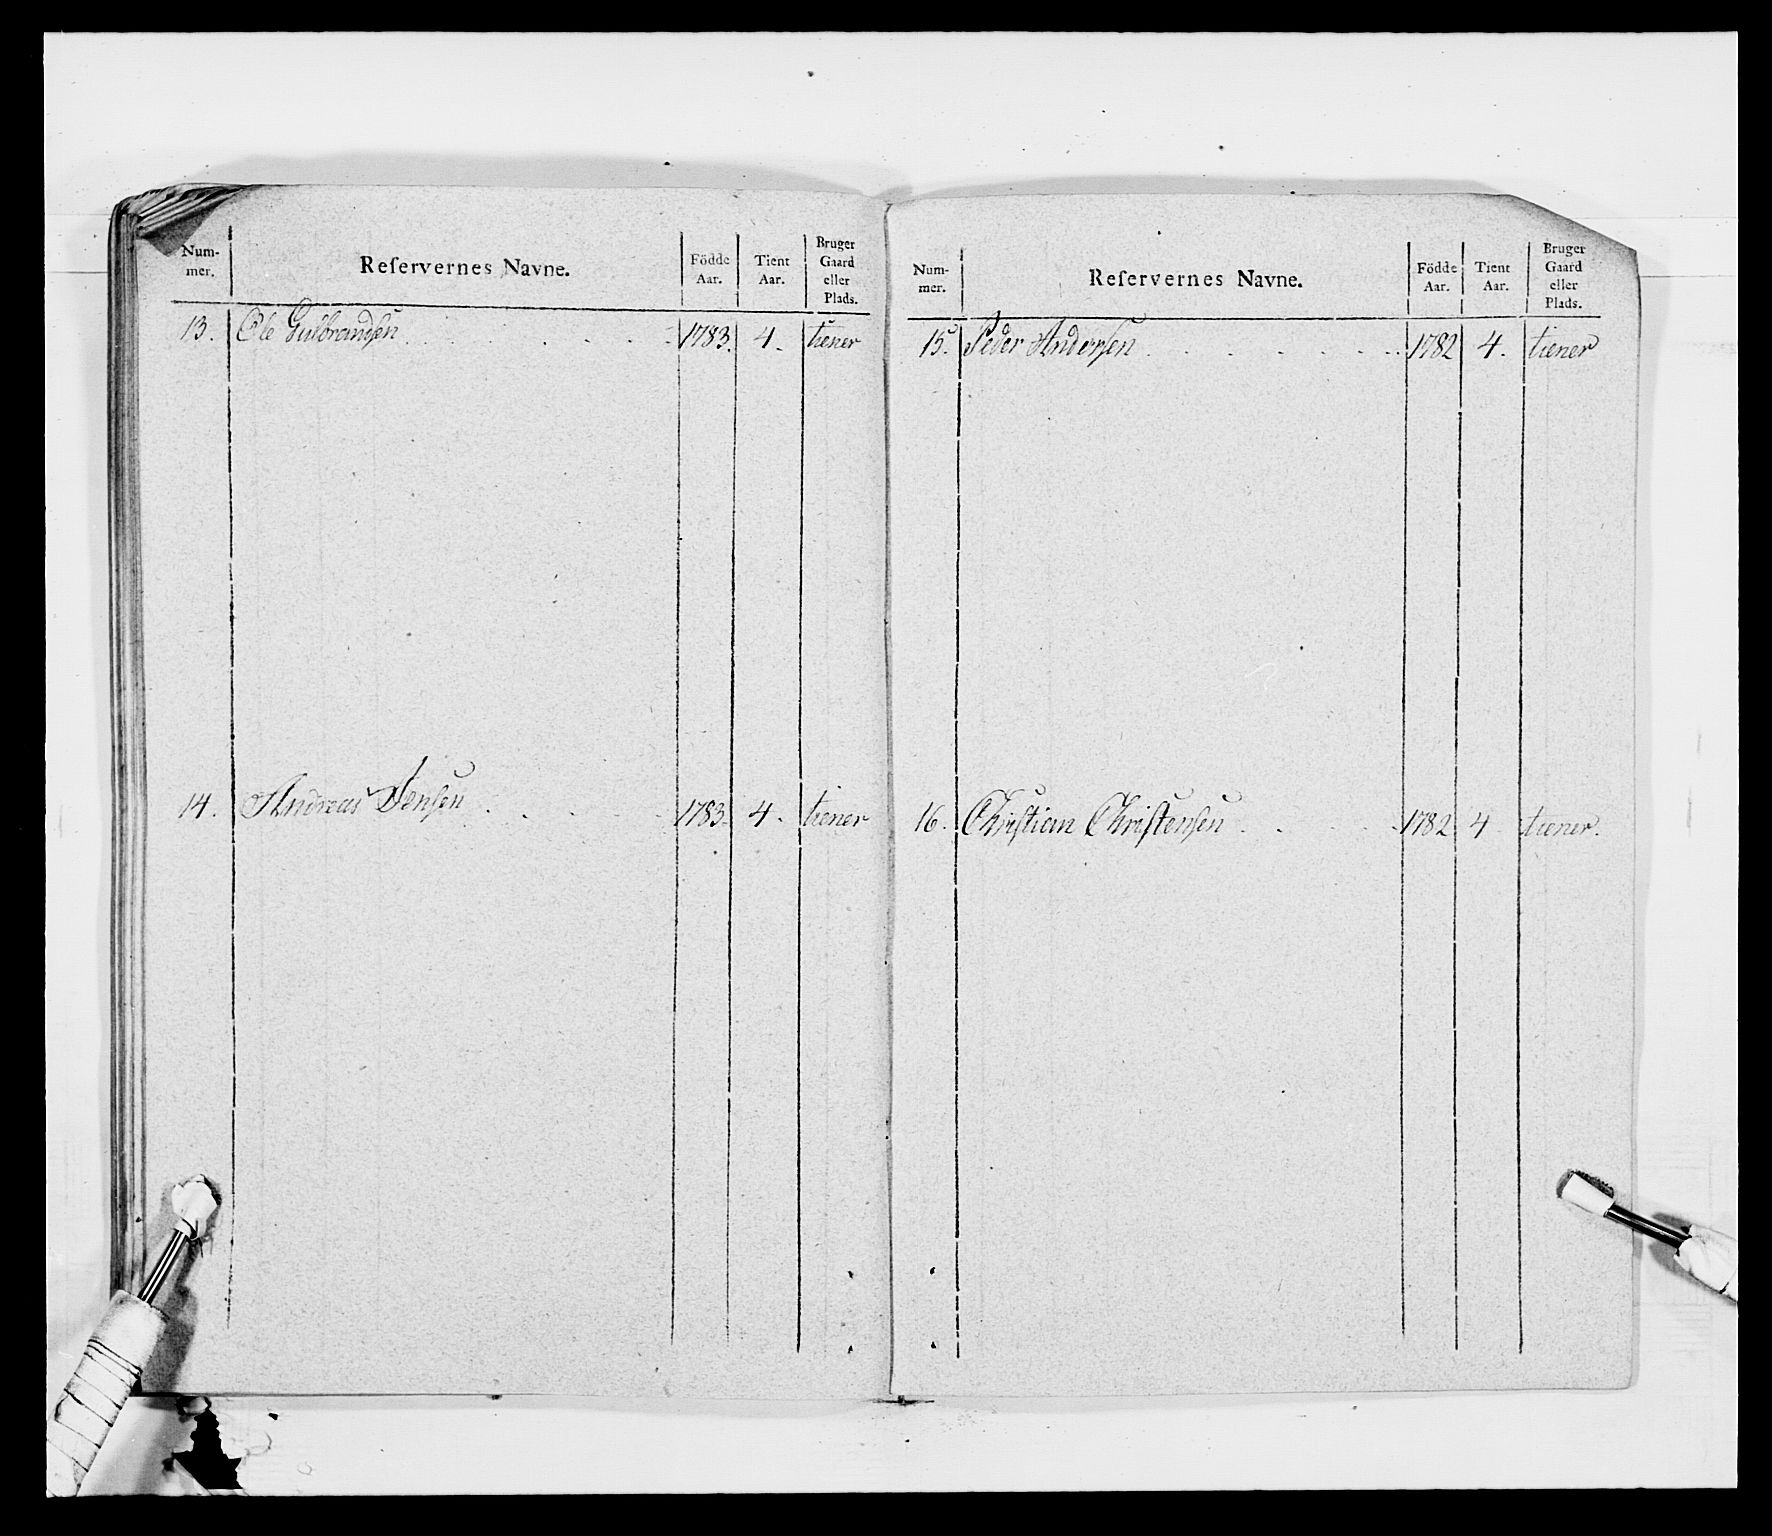 Num-
mer.
Reſervernes Navne.
Födde
Aar.
Tient
Aar.
Bruger
Gaard
eller
Plads.
13. Ole Gulbrandsen . . . . . . . 1783. 4. tiener
14. Andreas Jensen . . . . . 1783. 4. tiener
Num-
mer.
Reſervernes Navne.
Födde
Aar.
Tient
Aar.
Bruger
Gaard
eller
Plads.
15. Peder Andersen . . . . . . . 1782 4. tiener
16. Christian Christensen . . . . . 1782 4 tiener.